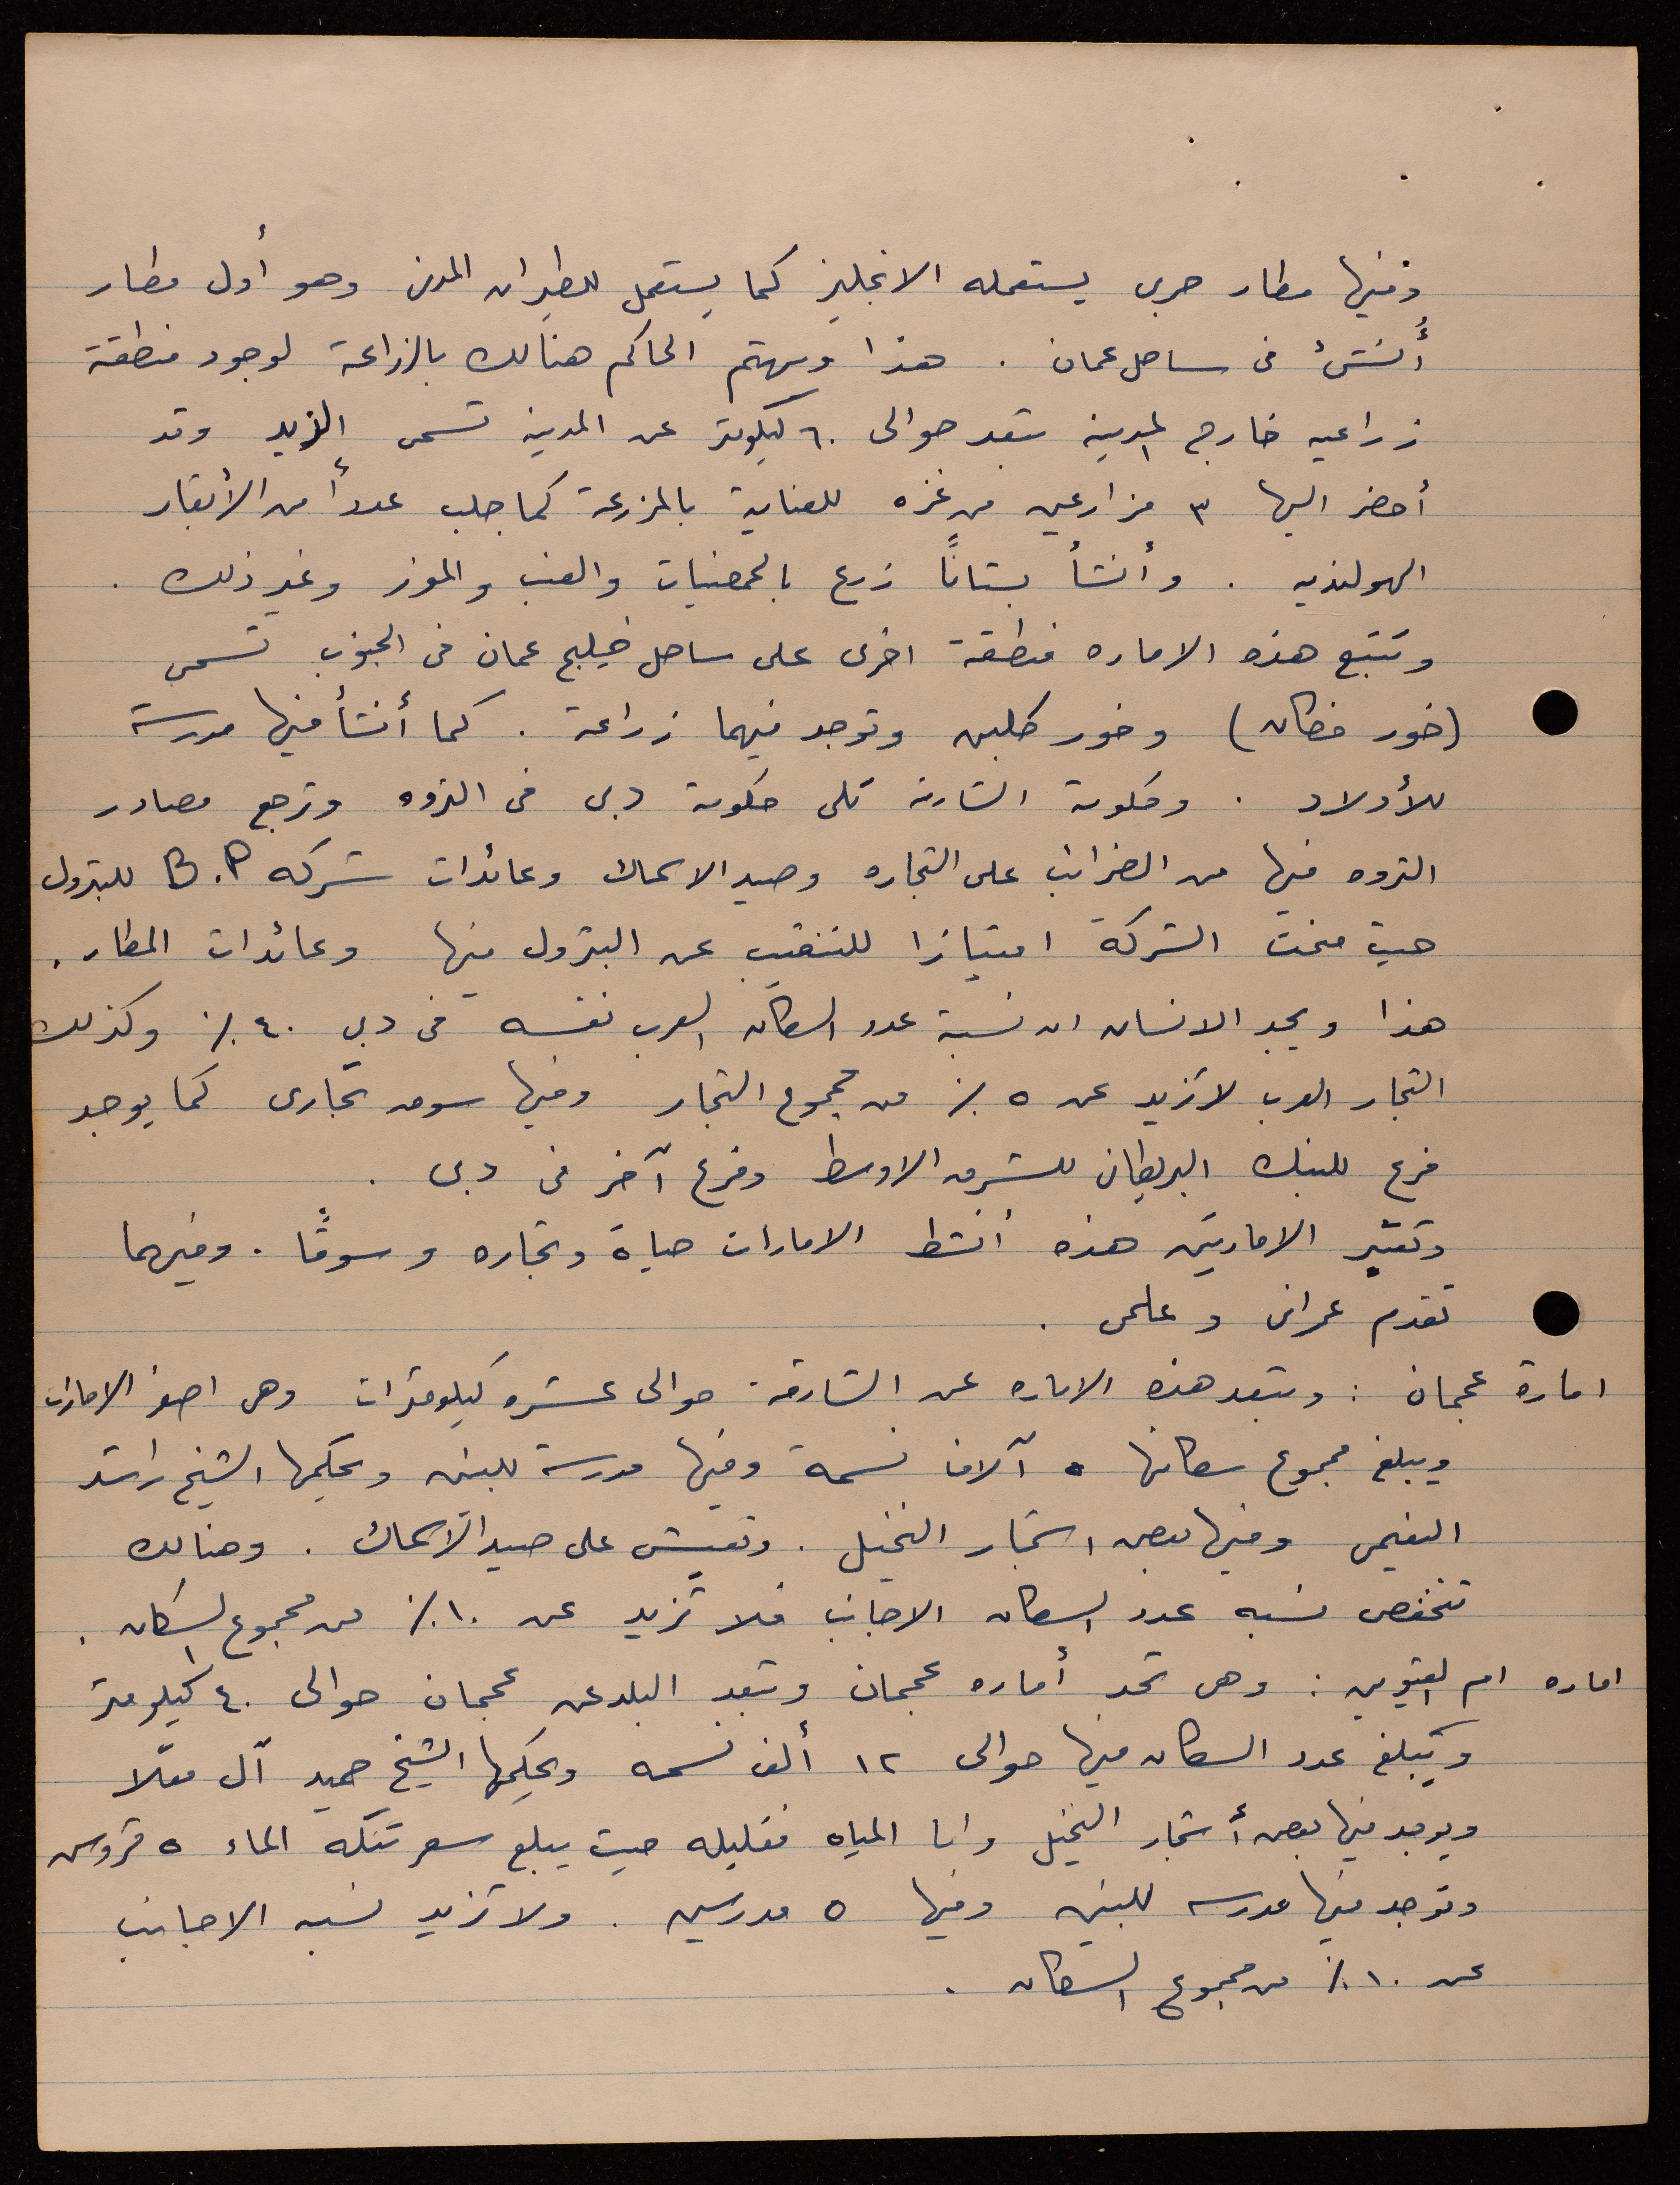 وفيها مطار حربى يستعمله الانجليز كما يستعمل للطيران المدنى وهو أول مطار
أُنشئ فى ساحل عمان . هذا ويهتم الحاكم هنالك بالزراعة لوجود منطقة
زراعيه خارج المدينه تبعد حوالى ٦٠ كيلومتر عن المدينه تسمى الذيد وقد
أحضر اليها ٣ مزارعين من غزه للعناية بالمزرعة كما جلب عدداً من الأبقار
الهولنديه . وأنشأ بستاناً زرع بالحمضيات والعنب والموز وغير ذلك .
وتتبع هذه الاماره منطقة اخرى على ساحل خليج عمان فى الجنوب تسمى
(خور فكان) وخور كلبى وتوجد فيهما زراعة . كما أنشأ فيها مدرسة
للأولاد . وحكومة الشارقه تلى حكومة دبى فى الثروه وترجع مصادر
الثروه فيها من الضرائب على التجاره وصيد الاسماك وعائدات شركه B.P للبترول
حيث منحت الشركة امتيازا للتنقيب عن البترول فيها وعائدات المطار .
هذا ويجد الانسان ان نسبة عدد السكان العرب نفسه فى دبي ٤٠ ٪ وكذلك
التجار العرب لا تزيد عن ٥ ٪ من مجموع التجار وفيها سوق تجارى كما يوجد
فرع للبنك البريطانى للشرق الاوسط وفرع آخر فى دبى .
وتعتبر الامارتين هذه أنشط الامارات حياة وتجاره وسوقًا . وفيهما
تقدم عمرانى وعلمى .
امارة عجمان : وتبعد هذه الاماره عن الشارقة حوالى عشره كيلومترات وهى اصغر الامارات
ويبلغ مجموع سكانها ٥ آلاف نسمة وفيها مدرسة للبنين ويحكمها الشيخ راشد
النعيمى وفيها بعض اشجار النخيل . وتعيش على صيد الاسماك . وهنالك
تنخفض نسبه عدد السكان الاجانب فلا تزيد عن ١٠ ٪ من مجموع السكان .
اماره ام القيوين : وهى تحد أماره عجمان وتبعد البلد عن عجمان حوالى ٤٠ كيلومتر
ويبلغ عدد السكان فيها حوالى ١٢ ألف نسمه ويحكمها الشيخ حميد آل معلّا
ويوجد فيها بعض أشجار النخيل واما المياه فقليله حيث يبلغ سعر تنكه الماء ٥ قروش
وتوجد فيها مدرسه للبنين وفيها ٥ مدرسين . ولا تزيد نسبه الاجانب
عن ١٠ ٪ من مجموع السكان .